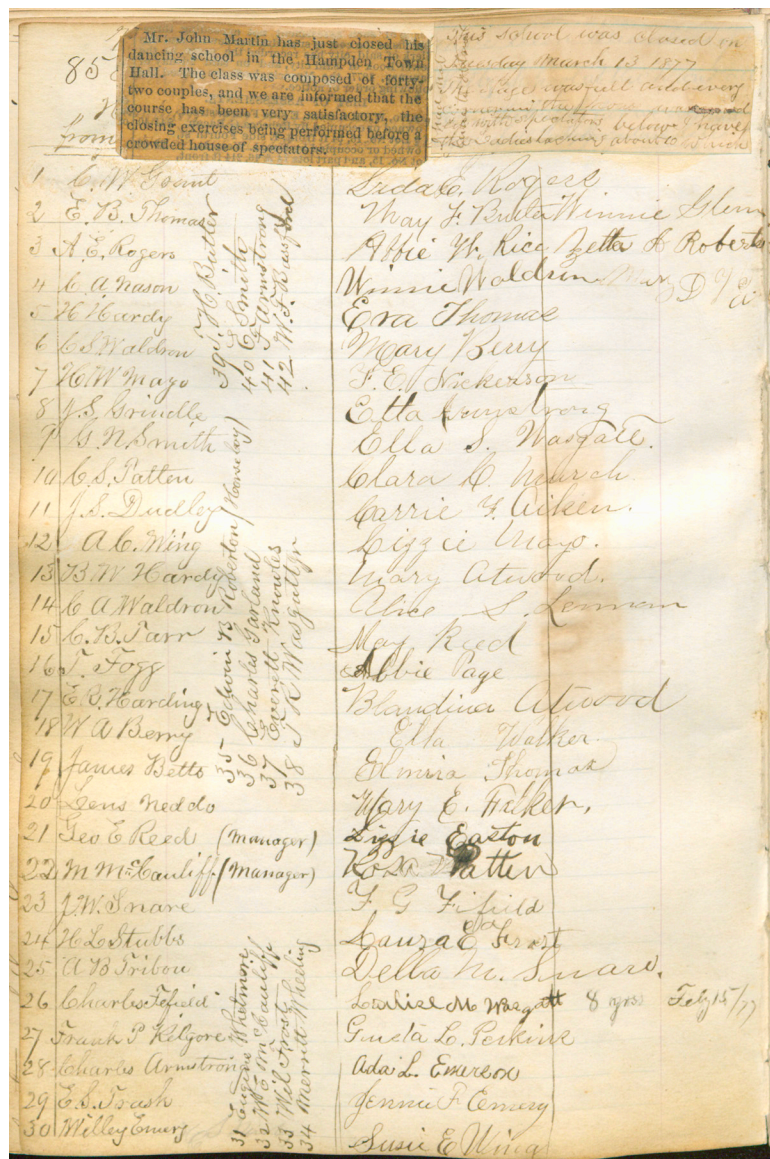 85
from
Mr. John Martin has just closed his
dancing school in the Hampden Town
Hall. The class was composed of forty-
two couples, and we are informed that the
course has been very satisfactory, the
closing exercises being performed before a
crowded house of spectators.
This School was closed on
Tuesday March 13 1877
The stage was full and every
spectators below & have
the Ladies about
1 C. W Grant
2 E. B. Thomas
3 A. E. Rogers
4 C. A. Nason
5 H Hardy
6 C S Waldron
7 H. W Mayo
8 J. S. Grindle
9 G. N Smith
10 C. S. Patten
11 J. S. Dudley
12 A. C. Wing
13 B. W Hardy
14 C A Waldron
15 C. B. Tarr
16 T. Fogg
17 E. B. Harding
18 W A Berry
19 James Betts
20 Lens Neddo
21 Geo E Reed (Manager)
22 M McCauliff (Manager)
23 J. W. Snare
24 H L Stubbs
25 A B Tribou
26 Charles Fefield
27 Frank P Kilgore
28 Charles Armstrong
29 E. S. Trask
30 Willey Emery
31 Eugene Whitmore
32 Wm McCauliff
33 Wil Frost
34 Merritt Wheeling
35 Edwin B Roberton
36 Charles Garland
37 Everett Knowles
38 J R Wasgatt Jr
39 J. H Butler
40 C Smith
41 F Armstrong
42 W. F. Bussford
Lieda E. Rogers
May F. Butler Winnie Glenn
Abbie W. Rice Zetta L Roberts
Winnie Waldron
Eva Thomas
Mary Berry
F. E. Nickerson
Etta Armstrong
Ella S. Wasgatt.
Clara C. Murch
Carrie F. Aiken.
Lizzie Mayo.
Mary Atwood.
Alice S. Lennan
May Reed
Abbie Page
Blandina Atwood
Etta Walker
Elmira Thomas
Mary E. Fiker.
Lizzie Easton
Rosa Patten
F G Fifield
Lauza E Frost
Della M. Snare.
Louise M Wasgatt 8 yrs Feby 15/77
Gusta L. Perkins
Ada L. Emerson
Jennie F Emery
Susie E Wing